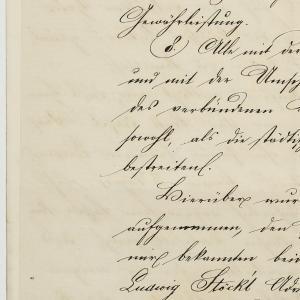 Gewährleistung.
8. Alle mit der
und mit der Umsch
des verbundenen
sowohl, als die städti
bestreiten.
Hierüber wur
aufgenommen, den
mir bekannten bei
Ludwig Stöckl Adv